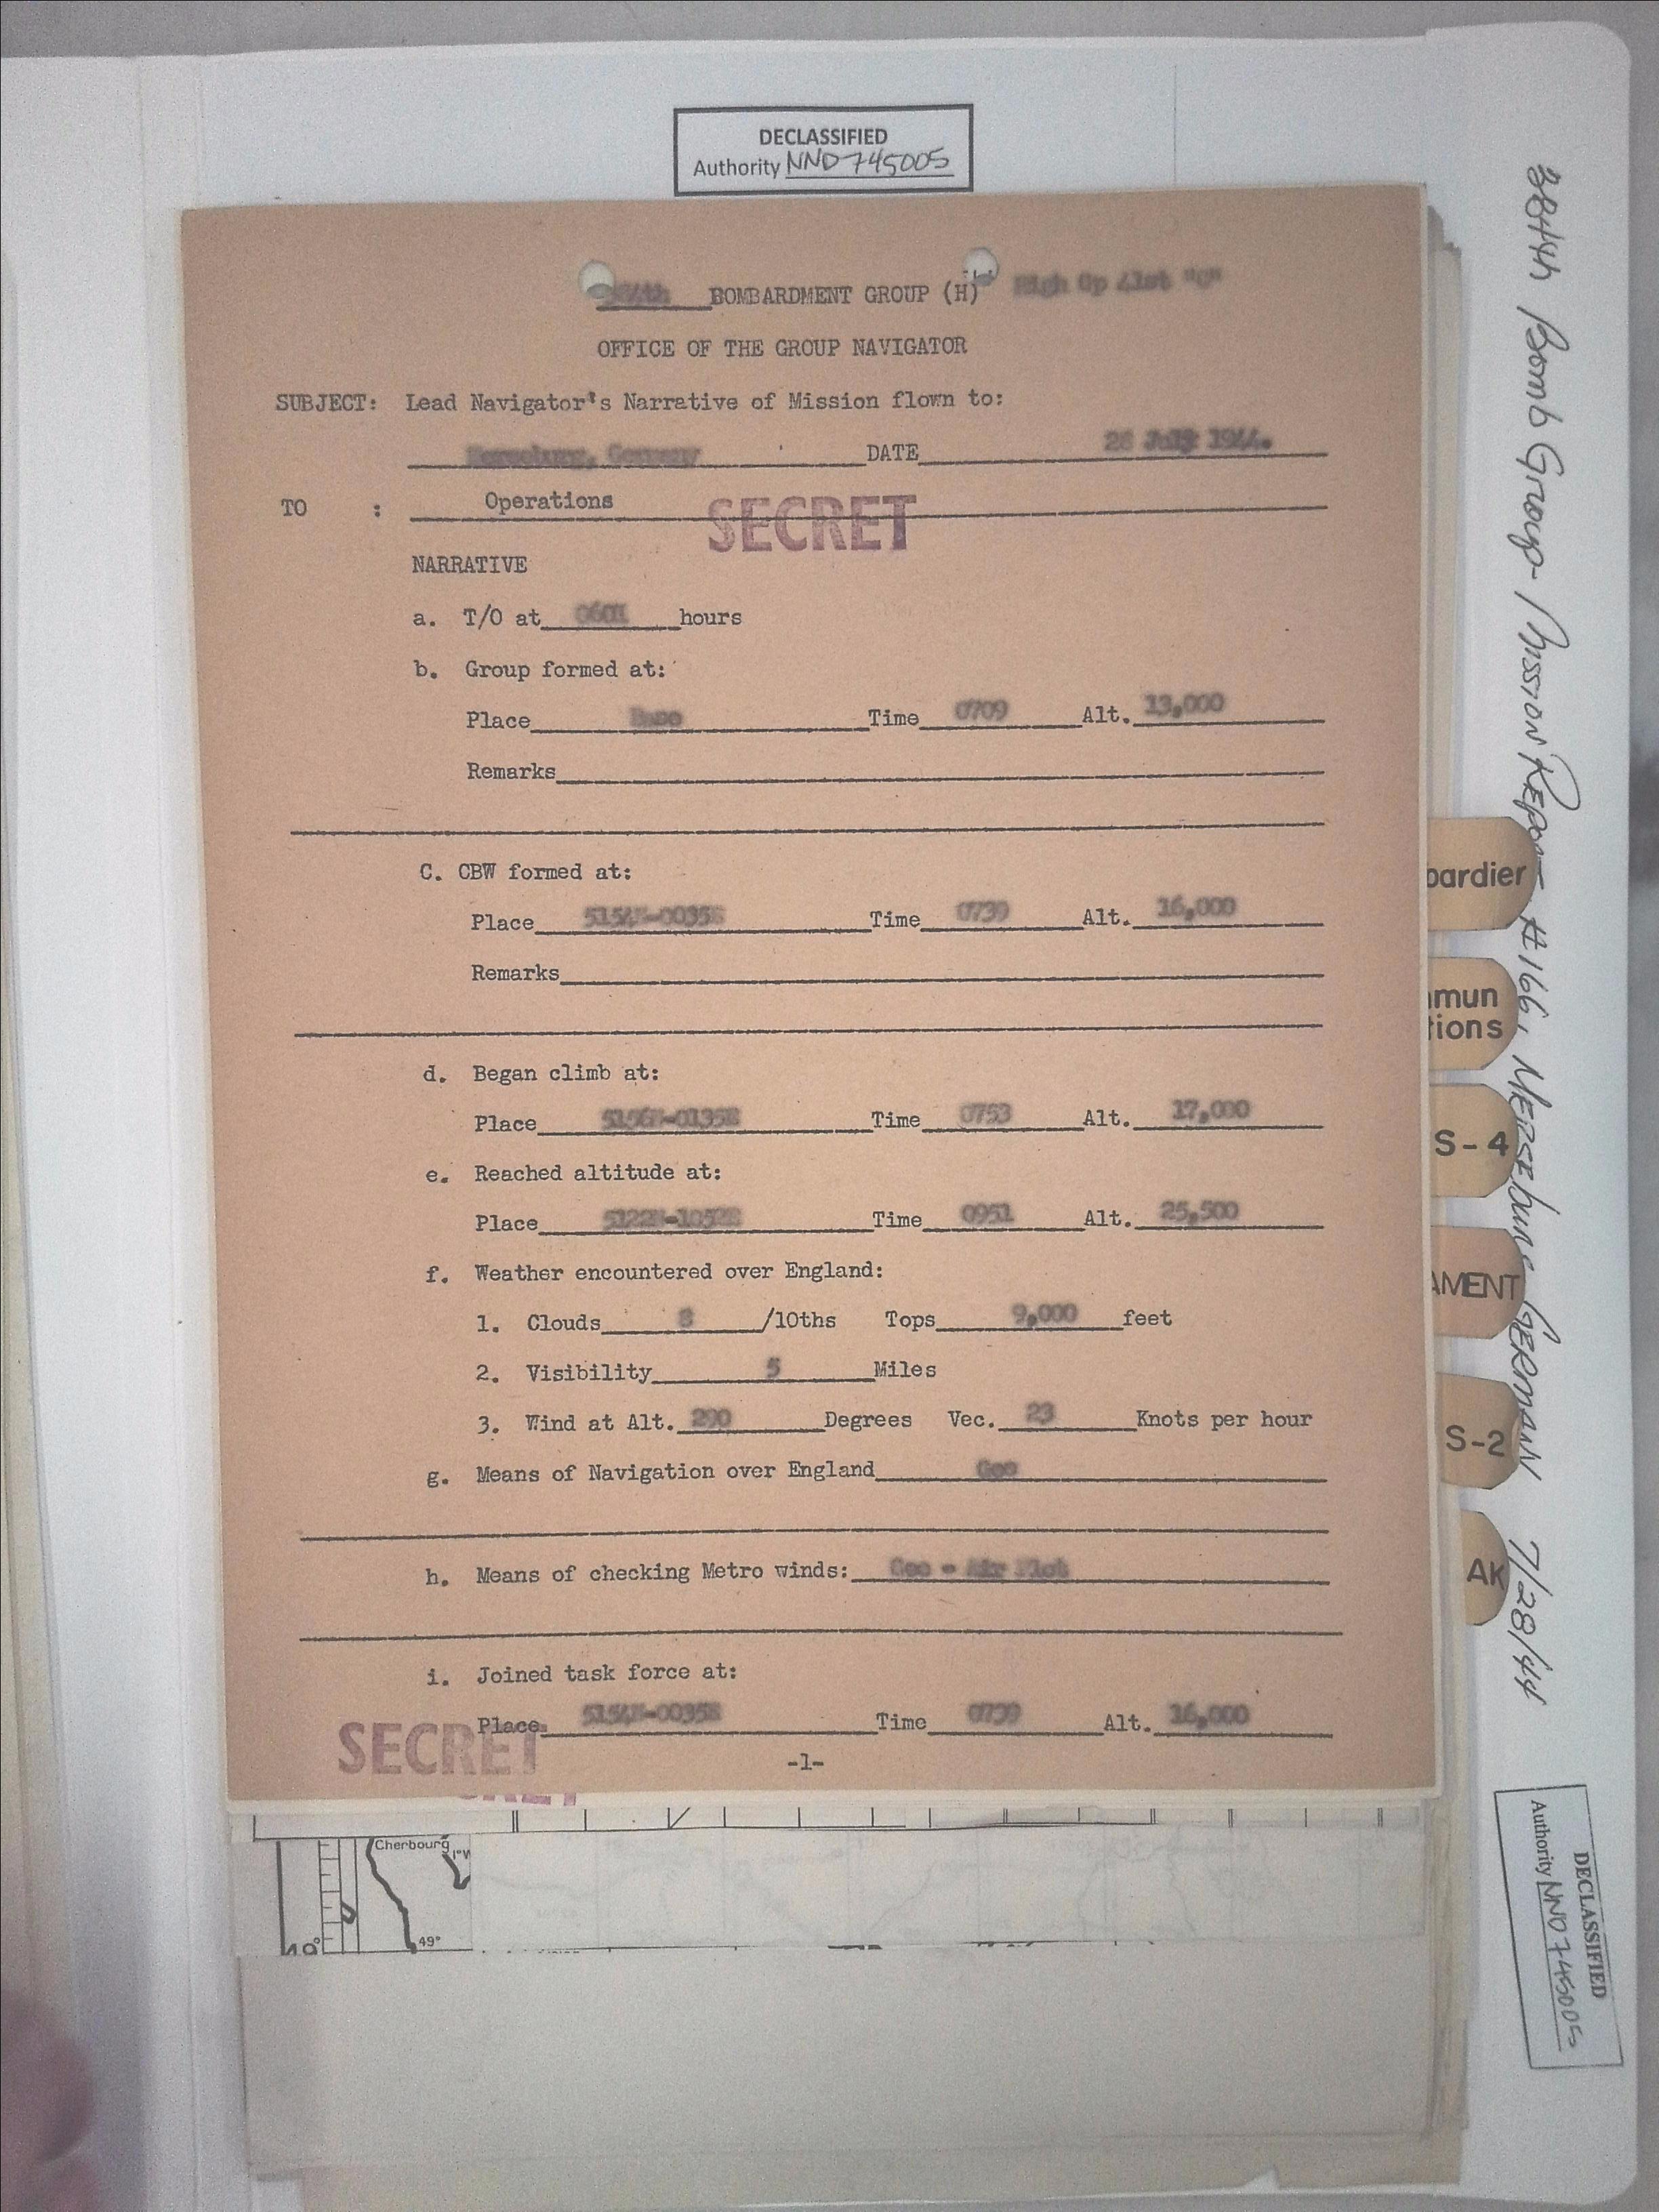 DECLASSIFIED
Authority NND 745005
384th BOMBARDMENT GROUP (H) High Gp 41st "C"
OFFICE OF THE GROUP NAVIGATOR
SUBJECT: Lead Navigator's Narrative of Mission flown to:
Merseburg, Germany DATE 28 July 1944.
TO : Operations
SECRET
NARRATIVE
a. T/O at 0601 hours
b. Group formed at:
Place Base Time 0709 Alt. 13,000
Remarks
C. CBW formed at:
Place 5154N-0035E Time 0739 Alt. 16,000
Remarks
d. Began climb at:
Place 5156N-0135E Time 0753 Alt. 17,000
e. Reached altitude at:
Place 5122N-1052E Time 0951 Alt. 25,500
f. Weather encountered over England:
1. Clouds 8 /10ths Tops 9,000 feet
2. Visibility 5 Miles
3. Wind at Alt. 290 Degrees Vec. 23 Knots per hour
g. Means of Navigation over England Gee
h. Means of checking Metro winds: Gee - Air Plot
i. Joined task force at:
Place 5154N-0035E Time 0739 Alt. 16,000
SECRET
-1-
384th Bomb Group - Mission Report #166, Merseburg GERMANY 7/28/44
bardier
mmun
tions
S-4
AMENT
S-2
AK
Cherbourg
1°W
49°
49°
DECLASSIFIED
Authority NND 745005